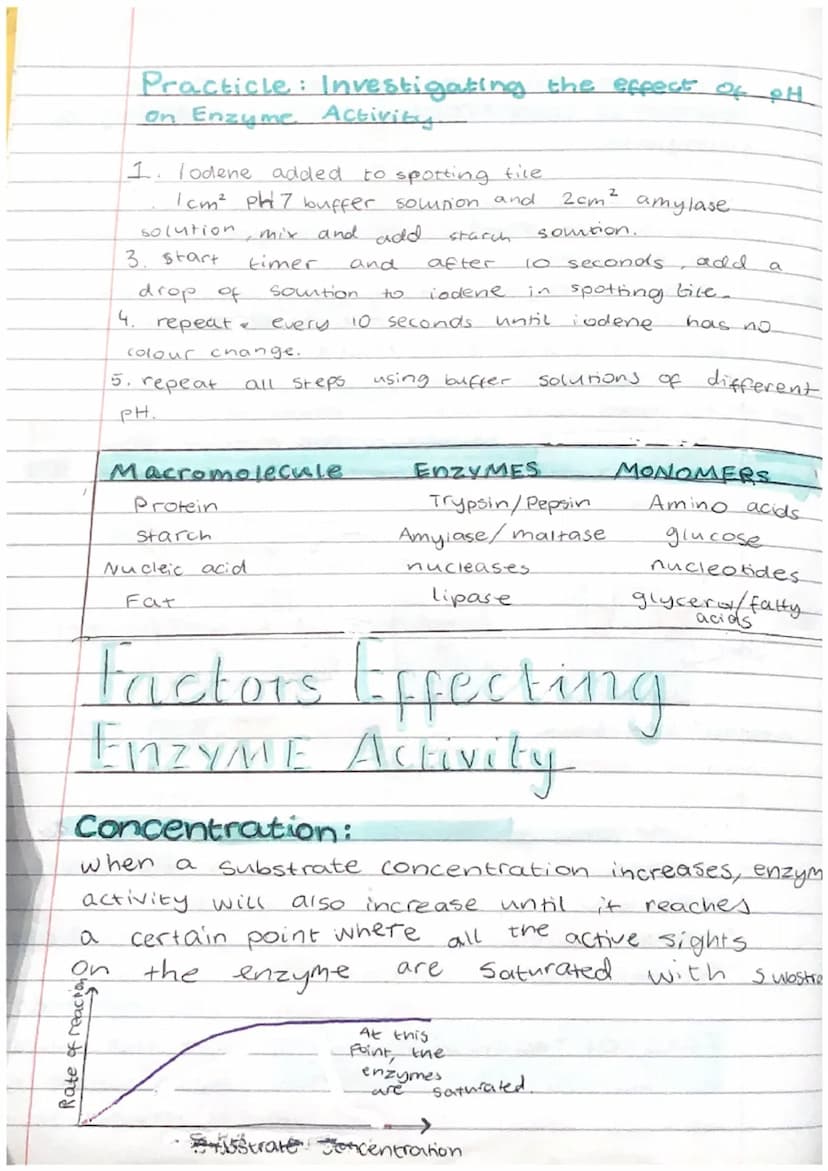 Practicle: Investigating the effect of pH
on Enzyme Activity
1. Iodene added to spotting tile
. 1cm² pH 7 buffer solution and 2cm² amylase
solution, mix and add starch solution.
3. start timer and after 10 seconds, add a
drop of solution to iodene in spotting tile.
4. repeat every 10 seconds until iodene has no
colour change.
5. repeat all steps using buffer solutions of different
pH.
Macromolecule ENZYMES MONOMERS
Protein Trypsin/Pepsin Amino acids
Starch Amylase/maltase glucose
Nucleic acid nucleases nucleotides
Fat lipase glycerol/fatty
acids
Factors Effecting
ENZYME Activity
Concentration:
when a substrate concentration increases, enzym
activity will also increase until it reaches
a certain point where all the active sights
on the enzyme are saturated with substra
Rate of reaction
At this
Point, the
enzymes
are saturated.
Substrate Concentration